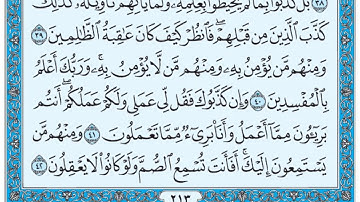 ٣٨ بَلْ كَذَّبُوا۟ بِمَا لَمْ يُحِيطُوا۟ بِعِلْمِهِۦ وَلَمَّا يَأْتِهِمْ تَأْوِيلُهُۥ ۚ كَذَٰلِكَ
كَذَّبَ ٱلَّذِينَ مِن قَبْلِهِمْ ۖ فَٱنظُرْ كَيْفَ كَانَ عَٰقِبَةُ ٱلظَّٰلِمِينَ ٣٩
وَمِنْهُم مَّن يُؤْمِنُ بِهِۦ وَمِنْهُم مَّن لَّا يُؤْمِنُ بِهِۦ ۚ وَرَبُّكَ أَعْلَمُ
بِٱلْمُفْسِدِينَ ٤٠ وَإِن كَذَّبُوكَ فَقُل لِّى عَمَلِى وَلَكُمْ عَمَلُكُمْ ۖ أَنتُم
بَرِيٓـُٔونَ مِمَّآ أَعْمَلُ وَأَنَا۠ بَرِىٓءٌ مِّمَّا تَعْمَلُونَ ٤١ وَمِنْهُم مَّن
يَسْتَمِعُونَ إِلَيْكَ ۚ أَفَأَنتَ تُسْمِعُ ٱلصُّمَّ وَلَوْ كَانُوا۟ لَا يَعْقِلُونَ ٤٢
٢١٣